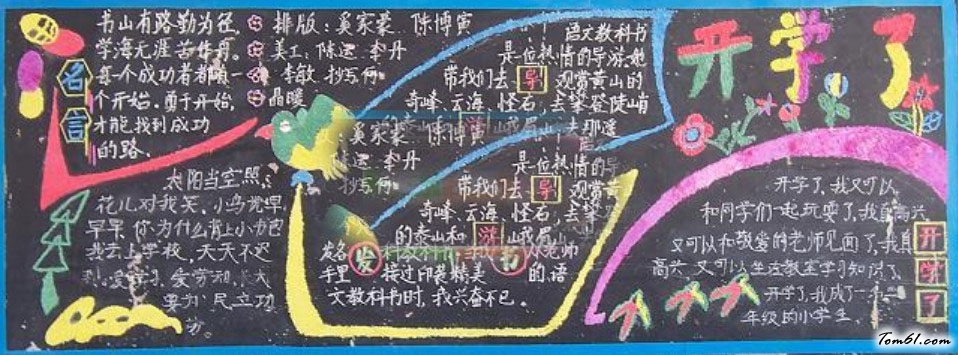 名言
书山有路勤为径
学海无涯苦作舟
每个成功者都有一
个开始.勇于开始,
才能找到成功
的路.
排版:奚家豪 陈博寅
美工:陈运 李丹
李敏 抄写:何
晶暖
太阳当空照,
花儿对我笑,小鸟说早
早早 你为什么背上小书包
我去上学校,天天不迟
到,爱学习 爱劳动,长大
要为人民立功
语文教科书
是位热情的导游.她
带我们去导观赏黄山的
奇峰、云海、怪石,去攀登陡峭
奚家豪 陈博寅
陈运 李丹
抄写:何
是位热情的导
带我们去导观赏黄
奇峰、云海、怪石,去攀
的泰山和游
发书
手里 接过印装精美 的语
文教科书时,我兴奋不已.
开学了
开学了,我又可以
和同学们一起玩耍了,我真高兴
又可以和敬爱的老师见面了,我真
高兴.又可以坐在教室学习知识了.
开学了,我成了一名二
年级的小学生.
开学了
Tom61.com